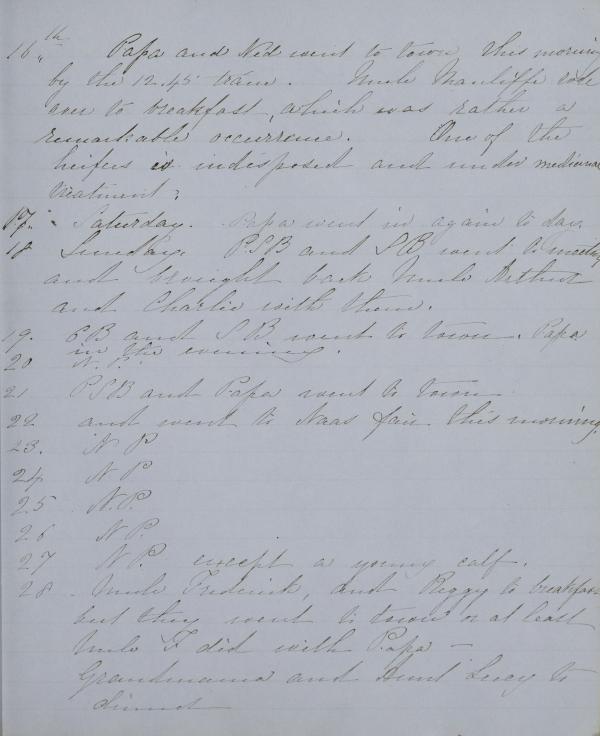 16th Papa and Ned went to town this morning
by the 12.45 train. Uncle Wancliffe rode
over to breakfast, which was rather a
remarkable occurrence. One of the
heifers is indisposed and under medicinal
treatment;
17. Saturday. Papa went in again to day.
18 Sunday. PSB and SB went to meeting
and brought back Uncle Arthur
and Charlie with them.
19. PB and SB went to town. Papa
in the evening.
20 N.P.
21 PSB and Papa went to town
22 and went to Naas fair this morning
23. N P
24 N P
25 N.P.
26 N P.
27 N P. except a young calf.
28. Uncle Frederick, and Peggy to breakfast
but they went to town or at least
Uncle F did with Papa –
Grandmama and Aunt Lucy to
dinner